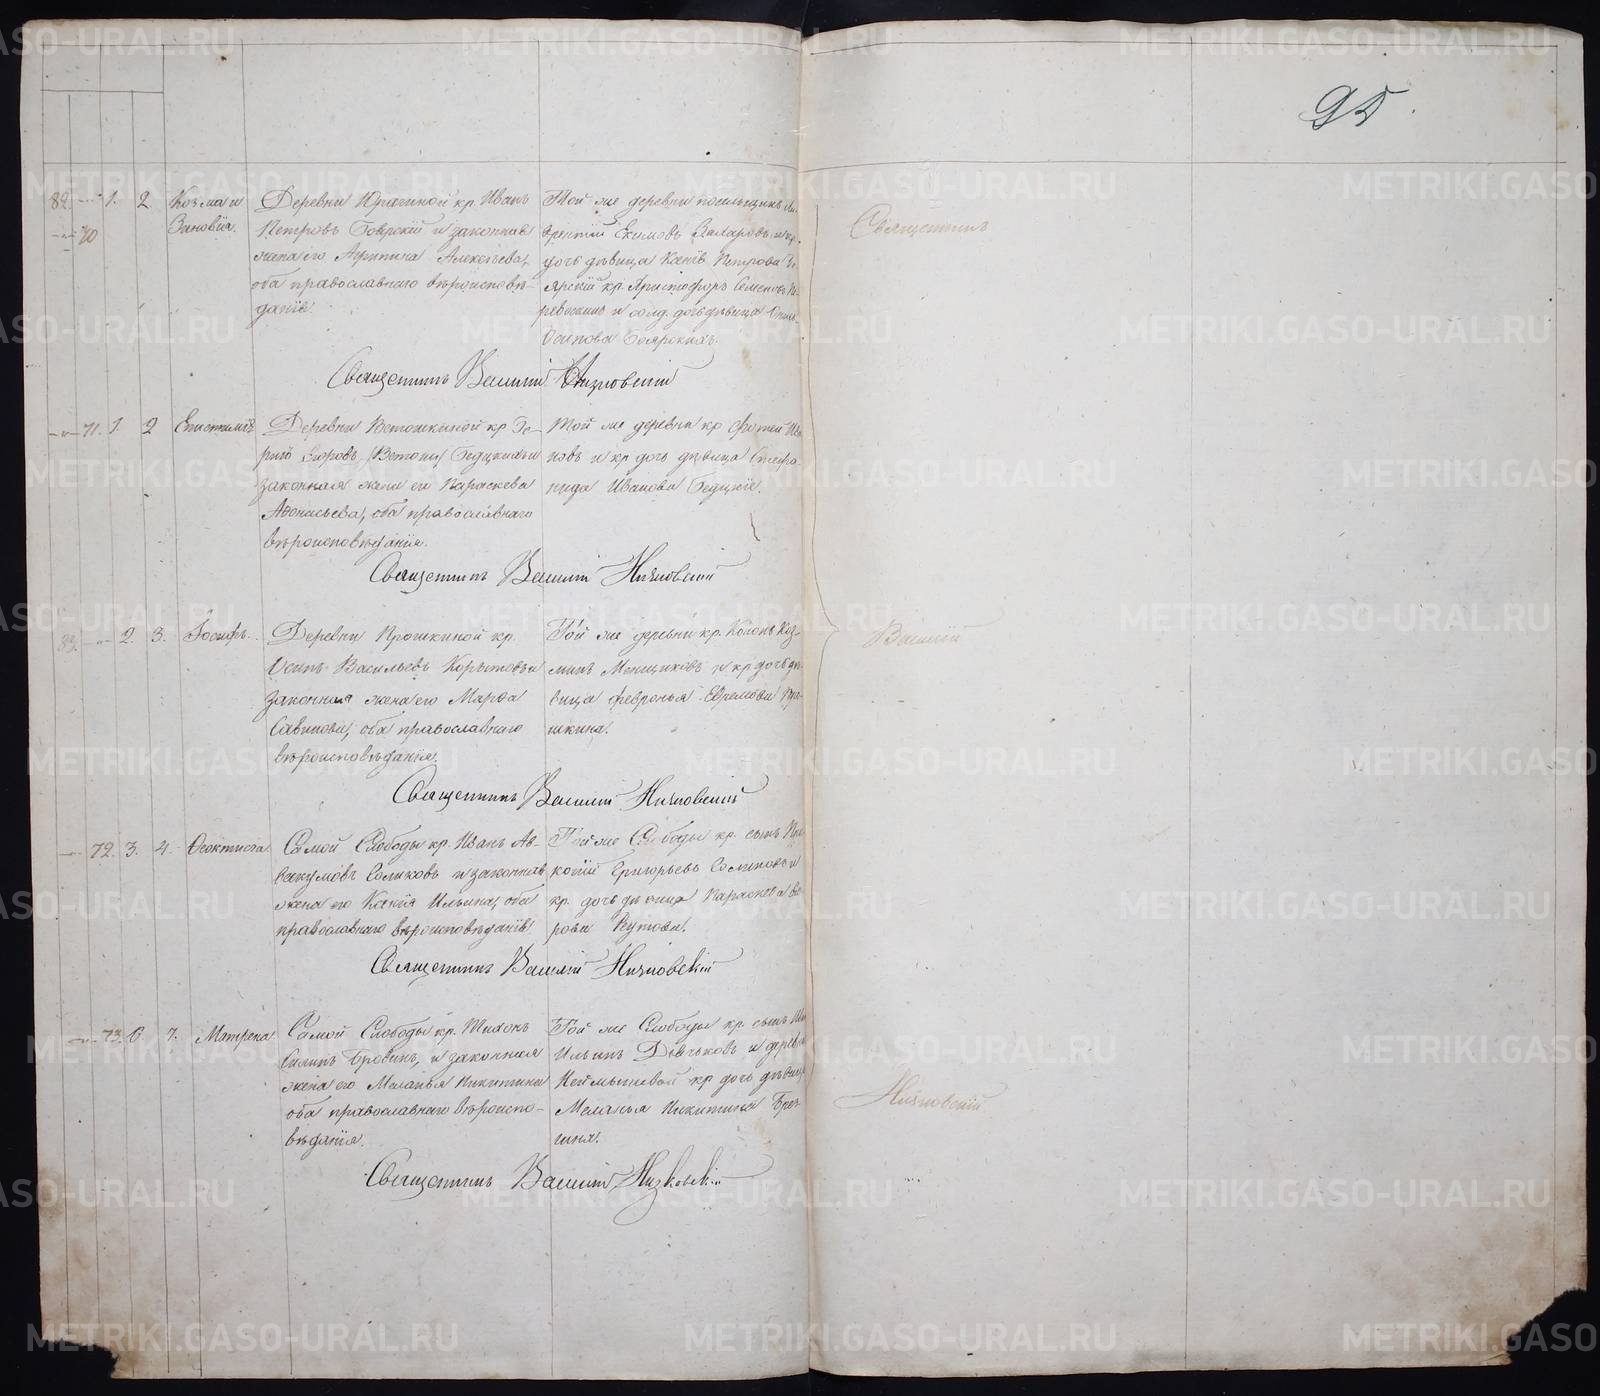 95.
82. 1. 2. Козма и
70 Зиновія.
Деревни Юрагиной кр. Иванъ
Петровъ Боярскій и законная
жена его Агрипина Алексѣева,
оба православнаго вѣроисповѣ-
данія.
Той же деревни
Екимовъ Захаровъ
дочь дѣвица Ксенія Петрова
кр. Христофоръ Семеновъ
и солд. дочь дѣвица
Осипова Боярскихъ.
Священникъ Василій Низковскій
71. 1. 2 Епистимія
Деревни Ветошкиной кр.
Егоровъ Бедцкихъ и
законная жена его Параскева
Афонасьева, оба православнаго
вѣроисповѣданія.
Той же деревни кр. Фотей Ива
новъ и кр. дочь дѣвица Стефа-
нида Иванова
Священникъ Василій Низковскій
83. 2. 3. Іосифъ.
Деревни Прошкиной кр.
Осипъ Васильевъ Корытовъ и
законная жена его Марфа
Савинова, оба православнаго
вѣроисповѣданія.
Той же деревни кр. Коз-
минъ Менщиковъ и кр. дочь дѣ-
вица Февронья Ефремова Про-
шкина.
Священникъ Василій Низковскій
72. 3. 4. Феоктиста
Самой Слободы кр. Иванъ Ав-
вакумовъ Соликовъ и законная
жена его Ксенія Ильина, оба
православнаго вѣроисповѣданія.
Той же Слободы кр. сынъ Про
копій Григорьевъ и
кр. дочь дѣвица Параскева
Священникъ Василій Низковскій
73. 6. 7. Матрена
Самой Слободы кр. Тихонъ
Силинъ Бровинъ, и законная
жена его Меланья Никитина
оба православнаго вѣроиспо-
вѣданія.
Той же Слободы кр. сынъ
Ильинъ Дьячковъ и деревни
кр. дочь дѣвица
Меланья Никитина
Священникъ Василій Низковскій
Священникъ
Василій
Низковскій
METRIKI.GASO-URAL.RU